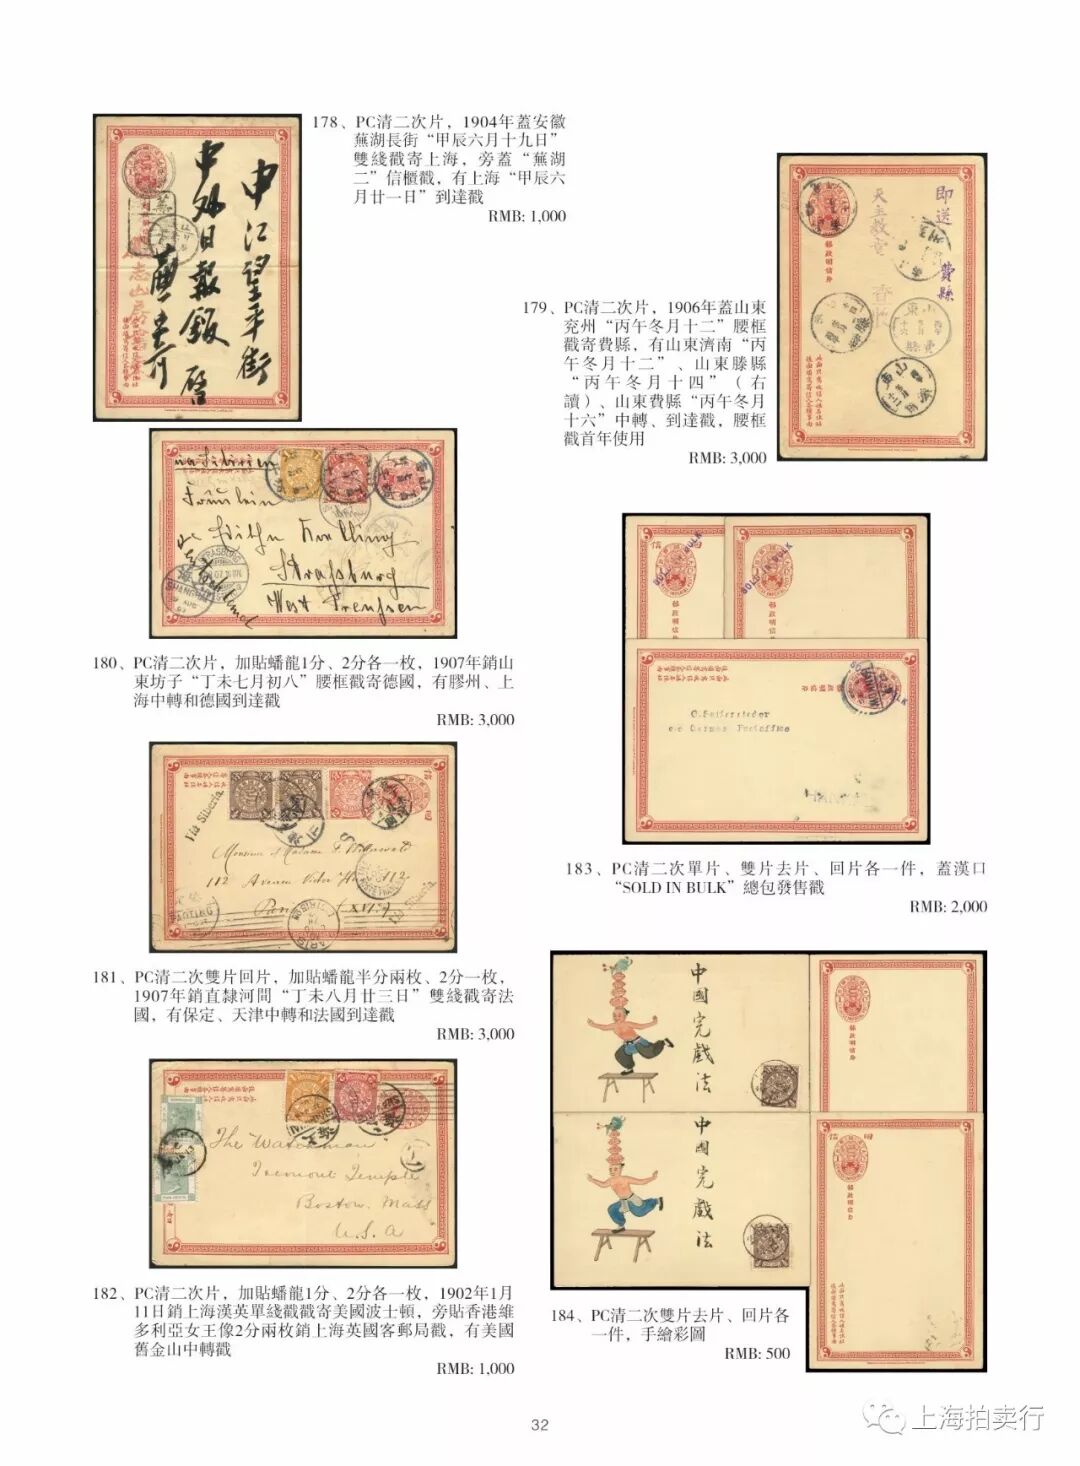 178、PC清二次片，1904年蓋安徽
蕪湖長街“甲辰六月十九日”
雙綫戳寄上海，旁蓋“蕪湖
二”信櫃戳，有上海“甲辰六
月廿一日”到達戳
RMB: 1,000
申江望平街
中外日報館 啓
即送 費縣
天主教堂
郵政明信片
179、PC清二次片，1906年蓋山東
兖州“丙午冬月十二”腰框
戳寄費縣，有山東濟南“丙
午冬月十二”、山東滕縣
“丙午冬月十四”（右
讀）、山東費縣“丙午冬月
十六”中轉、到達戳，腰框
戳首年使用
RMB: 3,000
Fräulein
Straßburg
West Preußen
180、PC清二次片，加貼蟠龍1分、2分各一枚，1907年銷山
東坊子“丁未七月初八”腰框戳寄德國，有膠州、上
海中轉和德國到達戳
RMB: 3,000
SOLD IN BULK
SOLD IN BULK
郵政明信片
郵政明信片
c/o German Postoffice
183、PC清二次單片、雙片去片、回片各一件，蓋漢口
“SOLD IN BULK”總包發售戳
RMB: 2,000
Via Siberia
112 Avenue Victor Hugo 112
Paris (XVIe)
Via Siberia
PAOTING
181、PC清二次雙片回片，加貼蟠龍半分兩枚、2分一枚，
1907年銷直隸河間“丁未八月廿三日”雙綫戳寄法
國，有保定、天津中轉和法國到達戳
RMB: 3,000
The Watchman
Tremont Temple
Boston, Mass
U.S.A
182、PC清二次片，加貼蟠龍1分、2分各一枚，1902年1月
11日銷上海漢英單綫戳戳寄美國波士頓，旁貼香港維
多利亞女王像2分兩枚銷上海英國客郵局戳，有美國
舊金山中轉戳
RMB: 1,000
中國完戲法
中國完戲法
郵政明信片
郵政明信片
184、PC清二次雙片去片、回片各
一件，手繪彩圖
RMB: 500
32
上海拍卖行